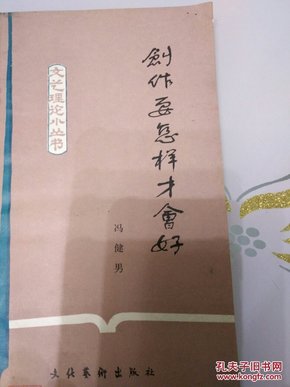 創作要怎样才會好
文艺理论小丛书
冯健男
文化藝術出版社
孔夫子旧书网